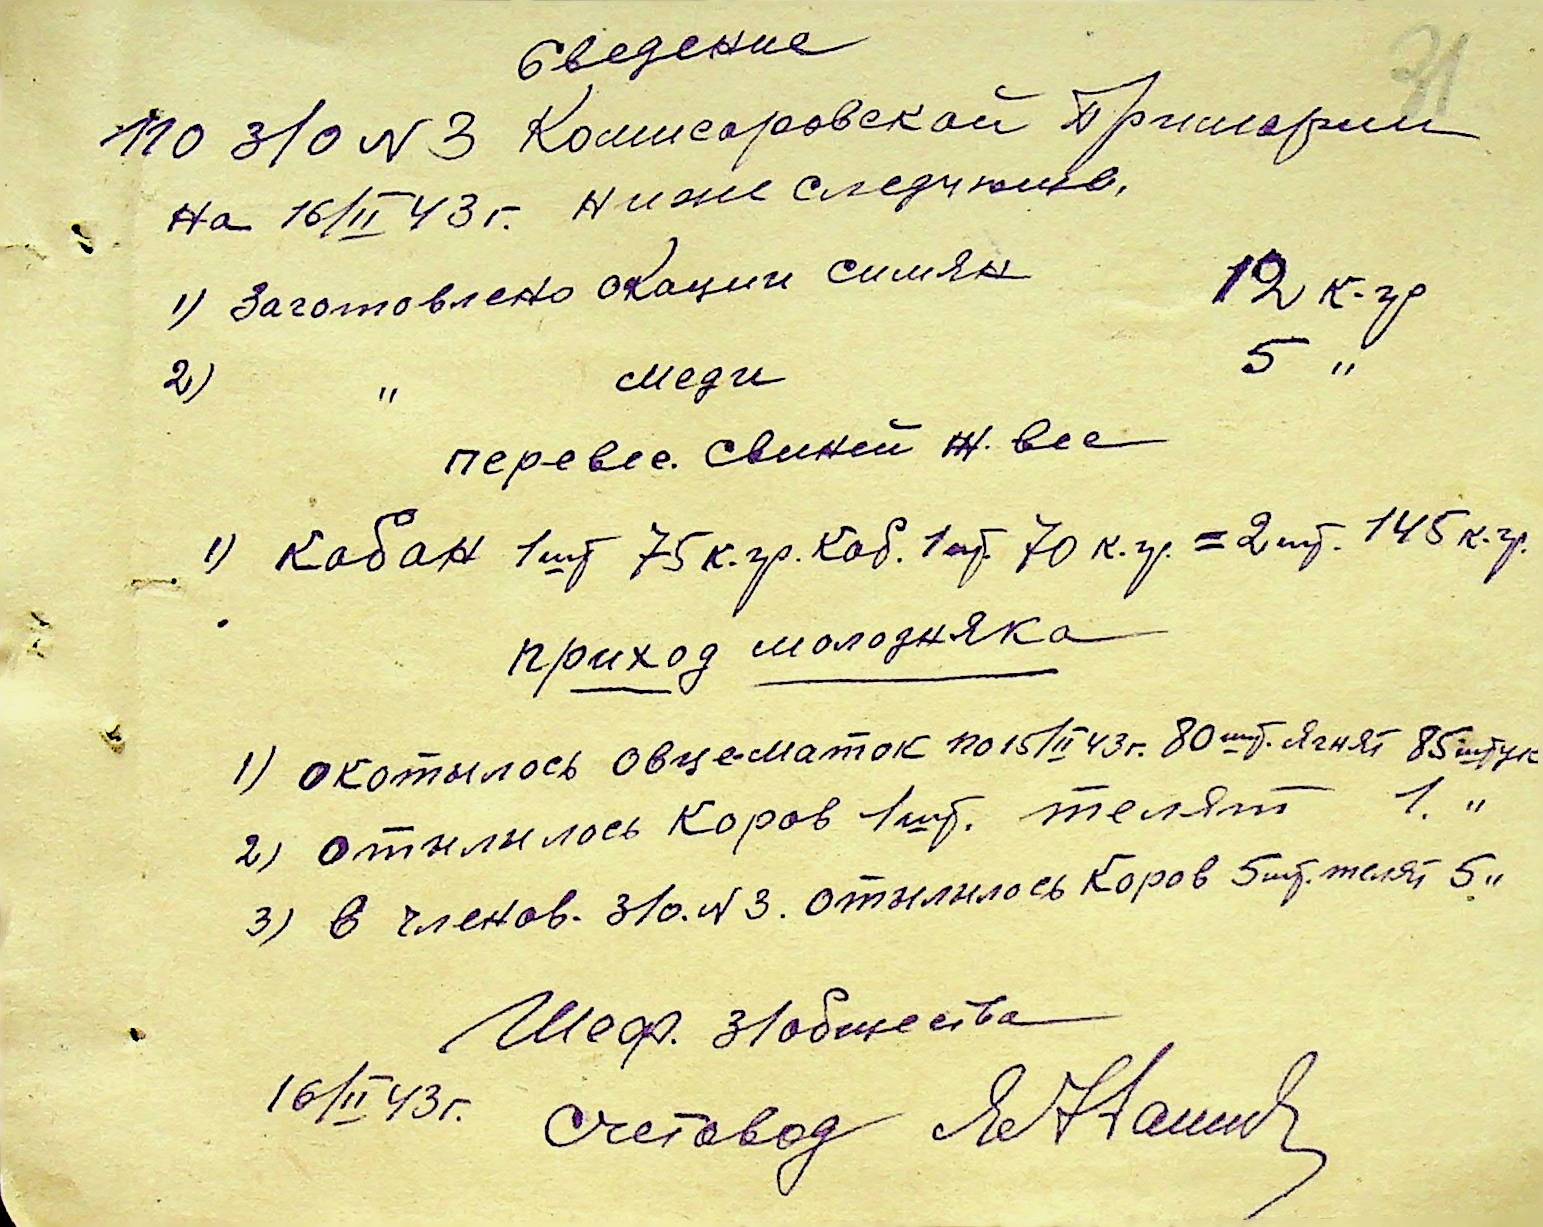 31
Сведение
по з/о N 3 Комисаровской Примарии
на 16/II 43 г. ниже следующие.
1) Заготовлено окации симян 12 к-гр
2) " меди 5 "
перевес. свиней ж. вес
1) Кабан 1 шт 75 к.гр. Каб. 1 шт. 70 к.гр. = 2 шт. 145 к.гр.
приход молодняка
1) окотылось овце-маток по 15/II 43 г. 80 шт. ягнят 85 штук
2) отылылось Коров 1 шт. телят 1. "
3) в членов. з/о. N 3. отылылось Коров 5 шт. телят 5 "
Шеф. з/общества
16/II 43 г. счетовод